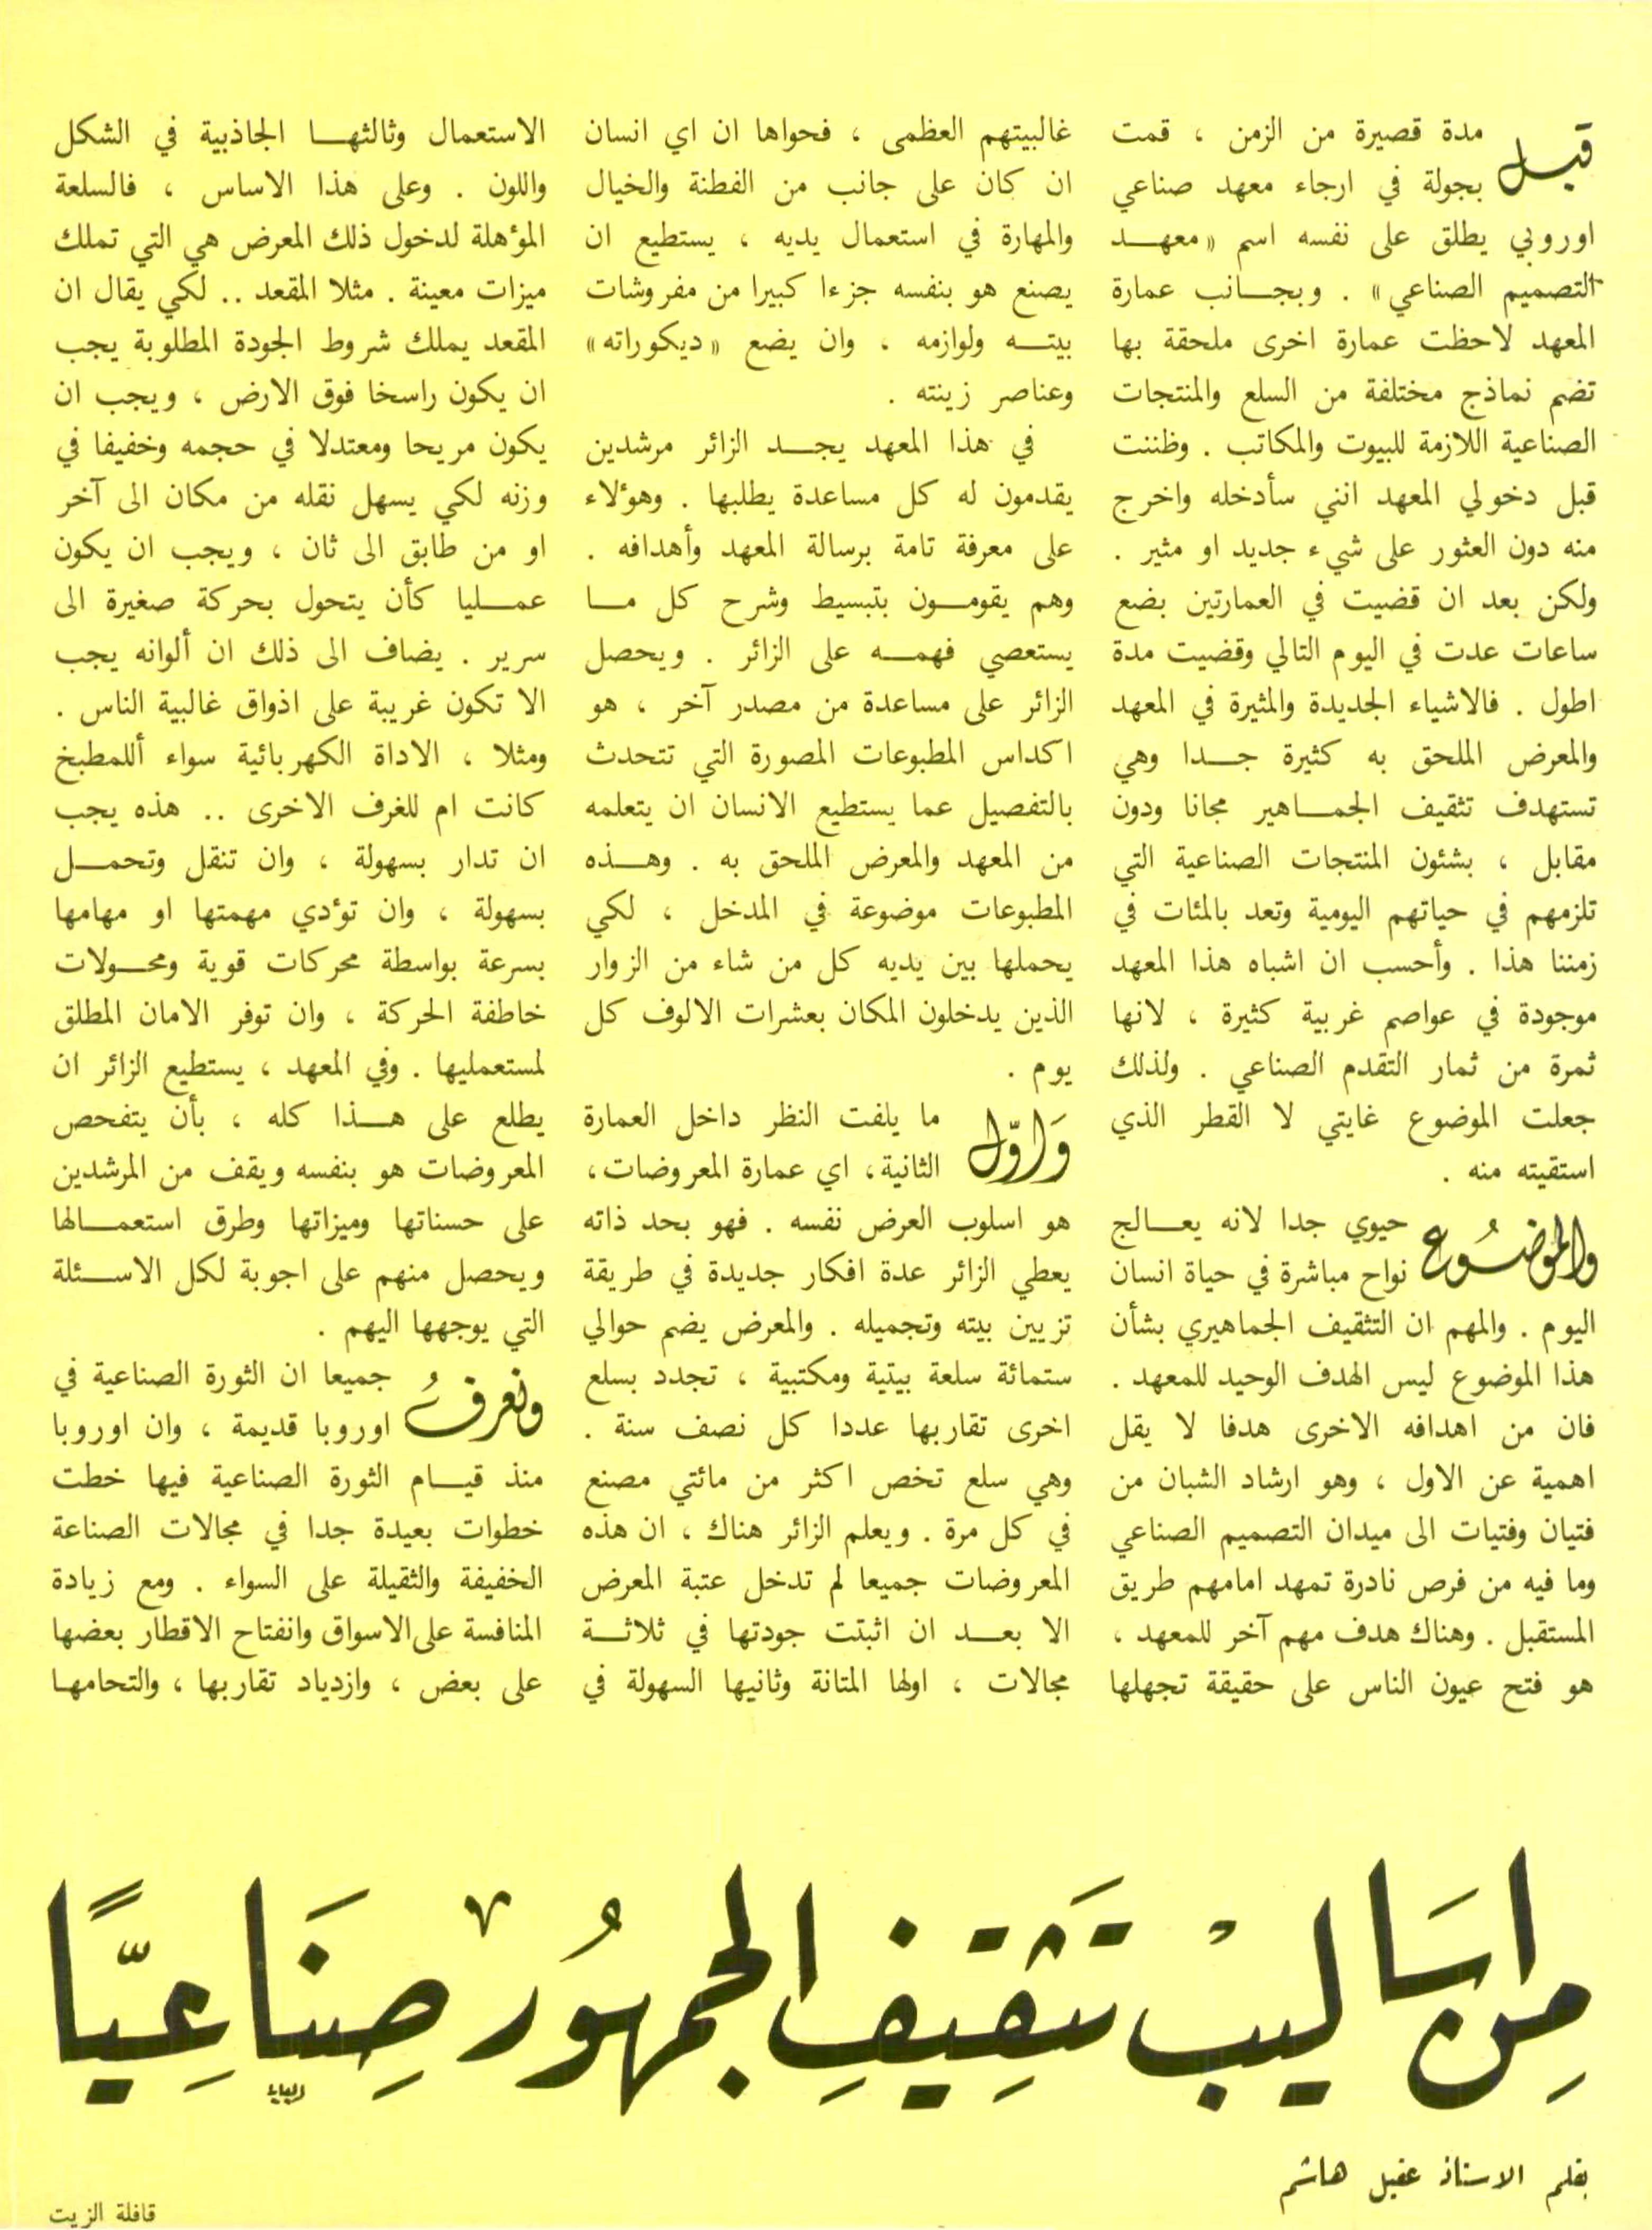 قبل مدة قصيرة من الزمن ، قمت
بجولة في ارجاء معهد صناعي
اوروبي يطلق على نفسه اسم «معهـــد
التصميم الصناعي» . وبجــانب عمارة
المعهد لاحظت عمارة اخرى ملحقة بها
تضم نماذج مختلفة من السلع والمنتجات
الصناعية اللازمة للبيوت والمكاتب . وظننت
قبل دخولي المعهد انني سأدخله واخرج
منه دون العثور على شيء جديد او مثير .
ولكن بعد ان قضيت في العمارتين بضع
ساعات عدت في اليوم التالي وقضيت مدة
اطول . فالاشياء الجديدة والمثيرة في المعهد
والمعرض الملحق به كثيرة جـــدا وهي
تستهدف تثقيف الجمــاهير مجانا ودون
مقابل ، بشئون المنتجات الصناعية التي
تلزمهم في حياتهم اليومية وتعد بالمئات في
زمننا هذا . وأحسب ان اشباه هذا المعهد
موجودة في عواصم غربية كثيرة ، لانها
ثمرة من ثمار التقدم الصناعي . ولذلك
جعلت الموضوع غايتي لا القطر الذي
استقيته منه .
والموضُوع حيوي جدا لانه يعـــالج
نواح مباشرة في حياة انسان
اليوم . والمهم ان التثقيف الجماهيري بشأن
هذا الموضوع ليس الهدف الوحيد للمعهد .
فان من اهدافه الاخرى هدفا لا يقل
اهمية عن الاول ، وهو ارشاد الشبان من
فتيان وفتيات الى ميدان التصميم الصناعي
وما فيه من فرص نادرة تمهد امامهم طريق
المستقبل . وهناك هدف مهم آخر للمعهد ،
هو فتح عيون الناس على حقيقة تجهلها
غالبيتهم العظمى ، فحواها ان اي انسان
ان كان على جانب من الفطنة والخيال
والمهارة في استعمال يديه ، يستطيع ان
يصنع هو بنفسه جزءا كبيرا من مفروشات
بيتـــه ولوازمه ، وان يضع «ديكوراته»
وعناصر زينته .
في هذا المعهد يجـــد الزائر مرشدين
يقدمون له كل مساعدة يطلبها . وهؤلاء
على معرفة تامة برسالة المعهد وأهدافه .
وهم يقومـــون بتبسيط وشرح كل مـــا
يستعصي فهمـــه على الزائر . ويحصل
الزائر على مساعدة من مصدر آخر ، هو
اكداس المطبوعات المصورة التي تتحدث
بالتفصيل عما يستطيع الانسان ان يتعلمه
من المعهد والمعرض الملحق به . وهـــذه
المطبوعات موضوعة في المدخل ، لكي
يحملها بين يديه كل من شاء من الزوار
الذين يدخلون المكان بعشرات الالوف كل
يوم .
وَاوّل ما يلفت النظر داخل العمارة
الثانية ، اي عمارة المعروضات ،
هو اسلوب العرض نفسه . فهو بحد ذاته
يعطي الزائر عدة افكار جديدة في طريقة
تزيين بيته وتجميله . والمعرض يضم حوالي
ستمائة سلعة بيتية ومكتبية ، تجدد بسلع
اخرى تقاربها عددا كل نصف سنة .
وهي سلع تخص اكثر من مائتي مصنع
في كل مرة . ويعلم الزائر هناك ، ان هذه
المعروضات جميعا لم تدخل عتبة المعرض
الا بعـــد ان اثبتت جودتها في ثلاثـــة
مجالات ، اولها المتانة وثانيها السهولة في
الاستعمال وثالثهـــا الجاذبية في الشكل
واللون . وعلى هذا الاساس ، فالسلعة
المؤهلة لدخول ذلك المعرض هي التي تملك
ميزات معينة . مثلا المقعد .. لكي يقال ان
المقعد يملك شروط الجودة المطلوبة يجب
ان يكون راسخا فوق الارض ، ويجب ان
يكون مريحا ومعتدلا في حجمه وخفيفا في
وزنه لكي يسهل نقله من مكان الى آخر
او من طابق الى ثان ، ويجب ان يكون
عمـــليا كأن يتحول بحركة صغيرة الى
سرير . يضاف الى ذلك ان ألوانه يجب
الا تكون غريبة على اذواق غالبية الناس .
ومثلا ، الاداة الكهربائية سواء أللمطبخ
كانت ام للغرف الاخرى .. هذه يجب
ان تدار بسهولة ، وان تنقل وتحمـــل
بسهولة ، وان تؤدي مهمتها او مهامها
بسرعة بواسطة محركات قوية ومحـــولات
خاطفة الحركة ، وان توفر الامان المطلق
لمستعمليها . وفي المعهد ، يستطيع الزائر ان
يطلع على هـــذا كله ، بأن يتفحص
المعروضات هو بنفسه ويقف من المرشدين
على حسناتها وميزاتها وطرق استعمـــالها
ويحصل منهم على اجوبة لكل الاســـئلة
التي يوجهها اليهم .
ونعرفُ جميعا ان الثورة الصناعية في
اوروبا قديمة ، وان اوروبا
منذ قيـــام الثورة الصناعية فيها خطت
خطوات بعيدة جدا في مجالات الصناعة
الخفيفة والثقيلة على السواء . ومع زيادة
المنافسة على الاسواق وانفتاح الاقطار بعضها
على بعض ، وازدياد تقاربها ، والتحامهـا
مِن اسَاليبْ تَثقِيفِ الجمهُور صِنَاعِيًّا
بقلم الاستاذ عقيل هاشم
قافلة الزيت